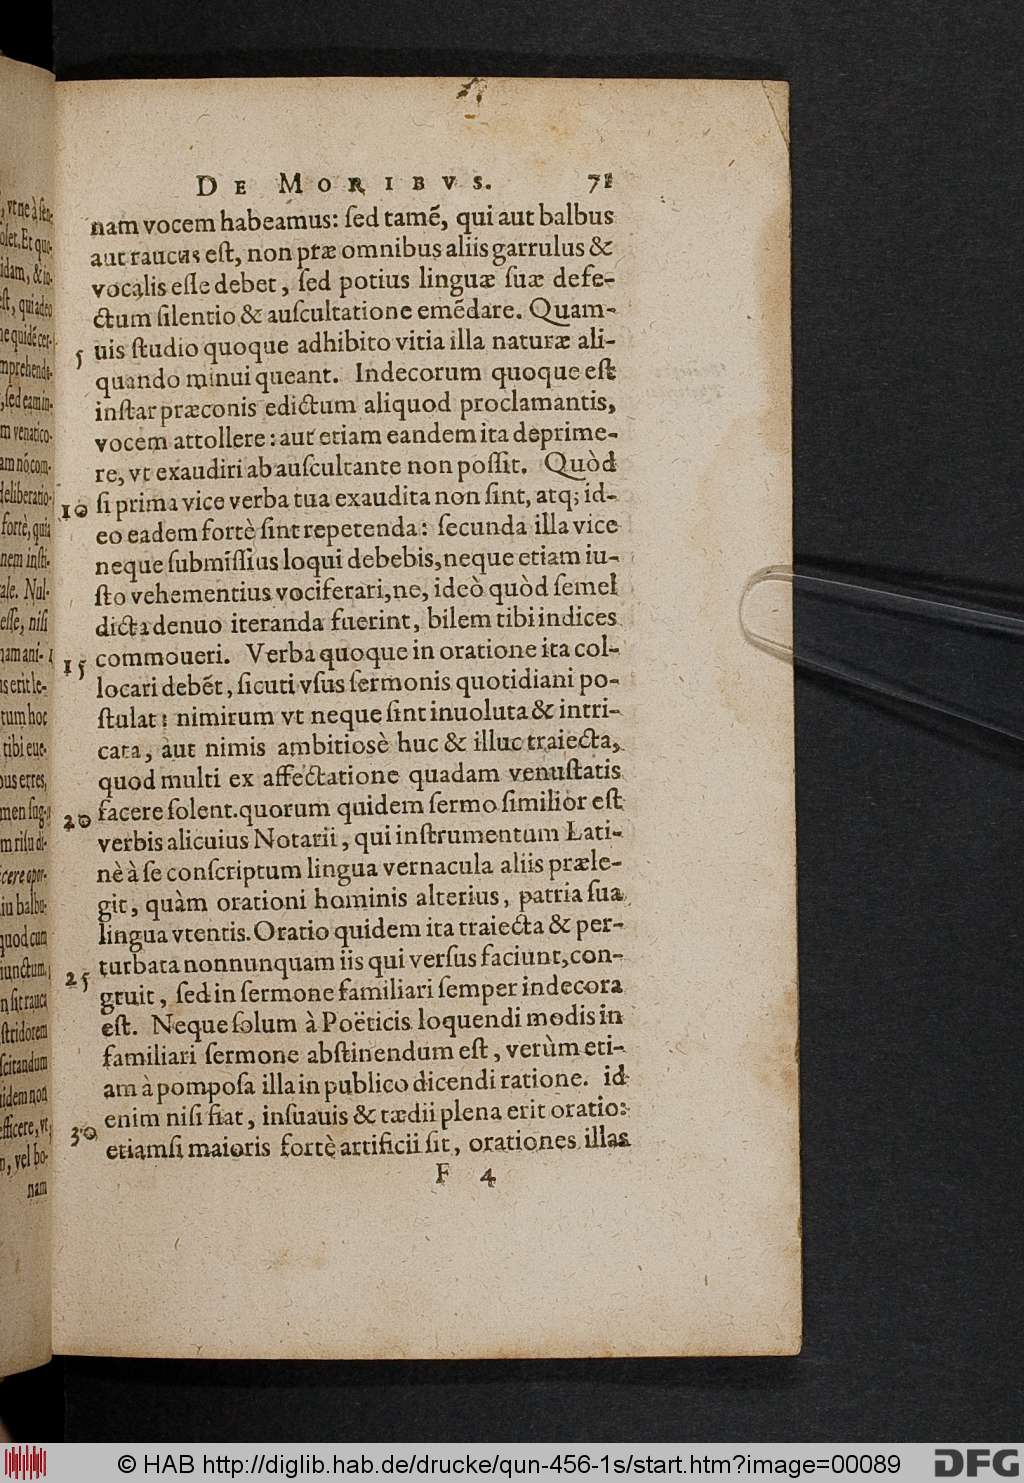 DE MORIBVS. 71
nam vocem habeamus: ſed tamẽ, qui aut balbus
aut raucus eſt, non præ omnibus aliis garrulus &
vocalis eſſe debet, ſed potius linguæ ſuæ defe-
ctum ſilentio & auſcultatione emẽdare. Quam-
5 uis ſtudio quoque adhibito vitia illa naturæ ali-
quando minui queant. Indecorum quoque eſt
inſtar præconis edictum aliquod proclamantis,
vocem attollere: aut etiam eandem ita deprime-
re, vt exaudiri ab auſcultante non poſſit. Quòd
10 ſi prima vice verba tua exaudita non ſint, atq; id-
eo eadem fortè ſint repetenda: ſecunda illa vice
neque ſubmiſſius loqui debebis, neque etiam iu-
ſto vehementius vociferari, ne, ideò quòd ſemel
dicta denuo iteranda fuerint, bilem tibi indices
15 commoueri. Verba quoque in oratione ita col-
locari debẽt, ſicuti vſus ſermonis quotidiani po-
ſtulat: nimirum vt neque ſint inuoluta & intri-
cata, aut nimis ambitiosè huc & illuc traiecta,
quod multi ex affectatione quadam venuſtatis
20 facere ſolent. quorum quidem ſermo ſimilior eſt
verbis alicuius Notarii, qui inſtrumentum Lati-
nè à ſe conſcriptum lingua vernacula aliis præle-
git, quàm orationi hominis alterius, patria ſua
lingua vtentis. Oratio quidem ita traiecta & per-
25 turbata nonnunquam iis qui verſus faciunt, con-
gruit, ſed in ſermone familiari ſemper indecora
eſt. Neque ſolum à Poëticis loquendi modis in
familiari ſermone abſtinendum eſt, verùm eti-
am à pompoſa illa in publico dicendi ratione. id
30 enim niſi fiat, inſuauis & tædii plena erit oratio:
etiamſi maioris fortè artificii ſit, orationes illas
F 4
© HAB http://diglib.hab.de/drucke/qun-456-1s/start.htm?image=00089
DFG